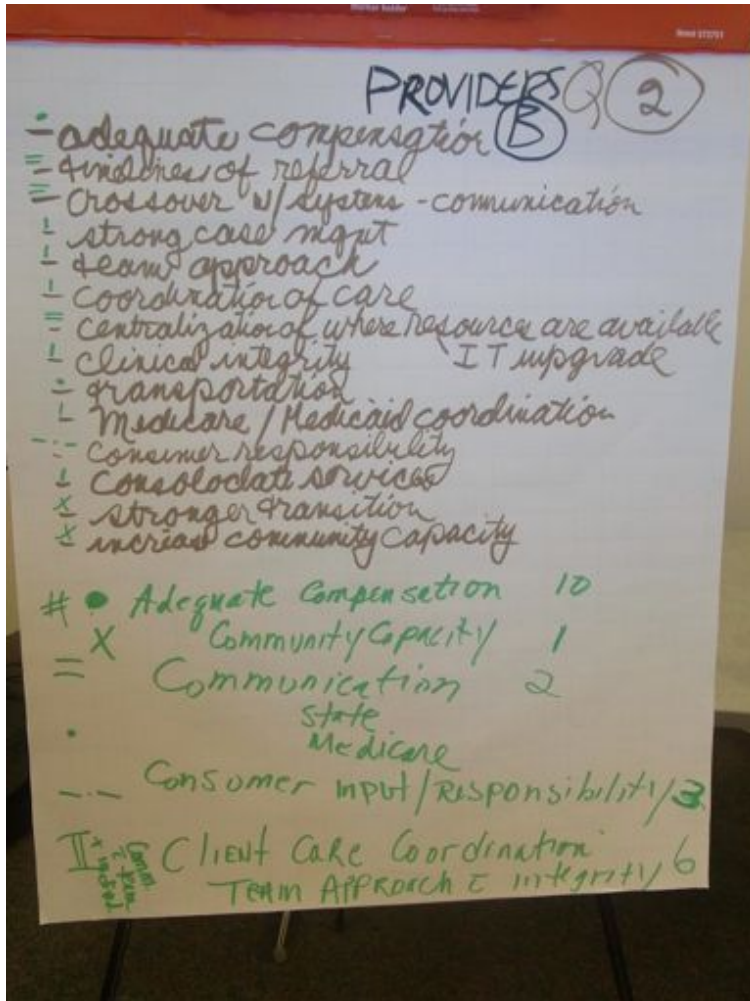 Marker holder
PROVIDERS Q 2
B
- adequate compensation
= timeliness of referral
= Crossover w/ systems - communication
! strong case mgmt
! team approach
! coordination of care
= centralization of where resources are available
! clinical integrity IT upgrade
- transportation
! Medicare / Medicaid coordination
-·- consumer responsibility
! consoloclate services
x stronger transition
x increase community capacity
# • Adequate Compensation 10
X Community Capacity 1
= Communication 2
State
• Medicare
-·- Consumer input / Responsibility 3
II Client Care Coordination 6
Team Approach c integrity